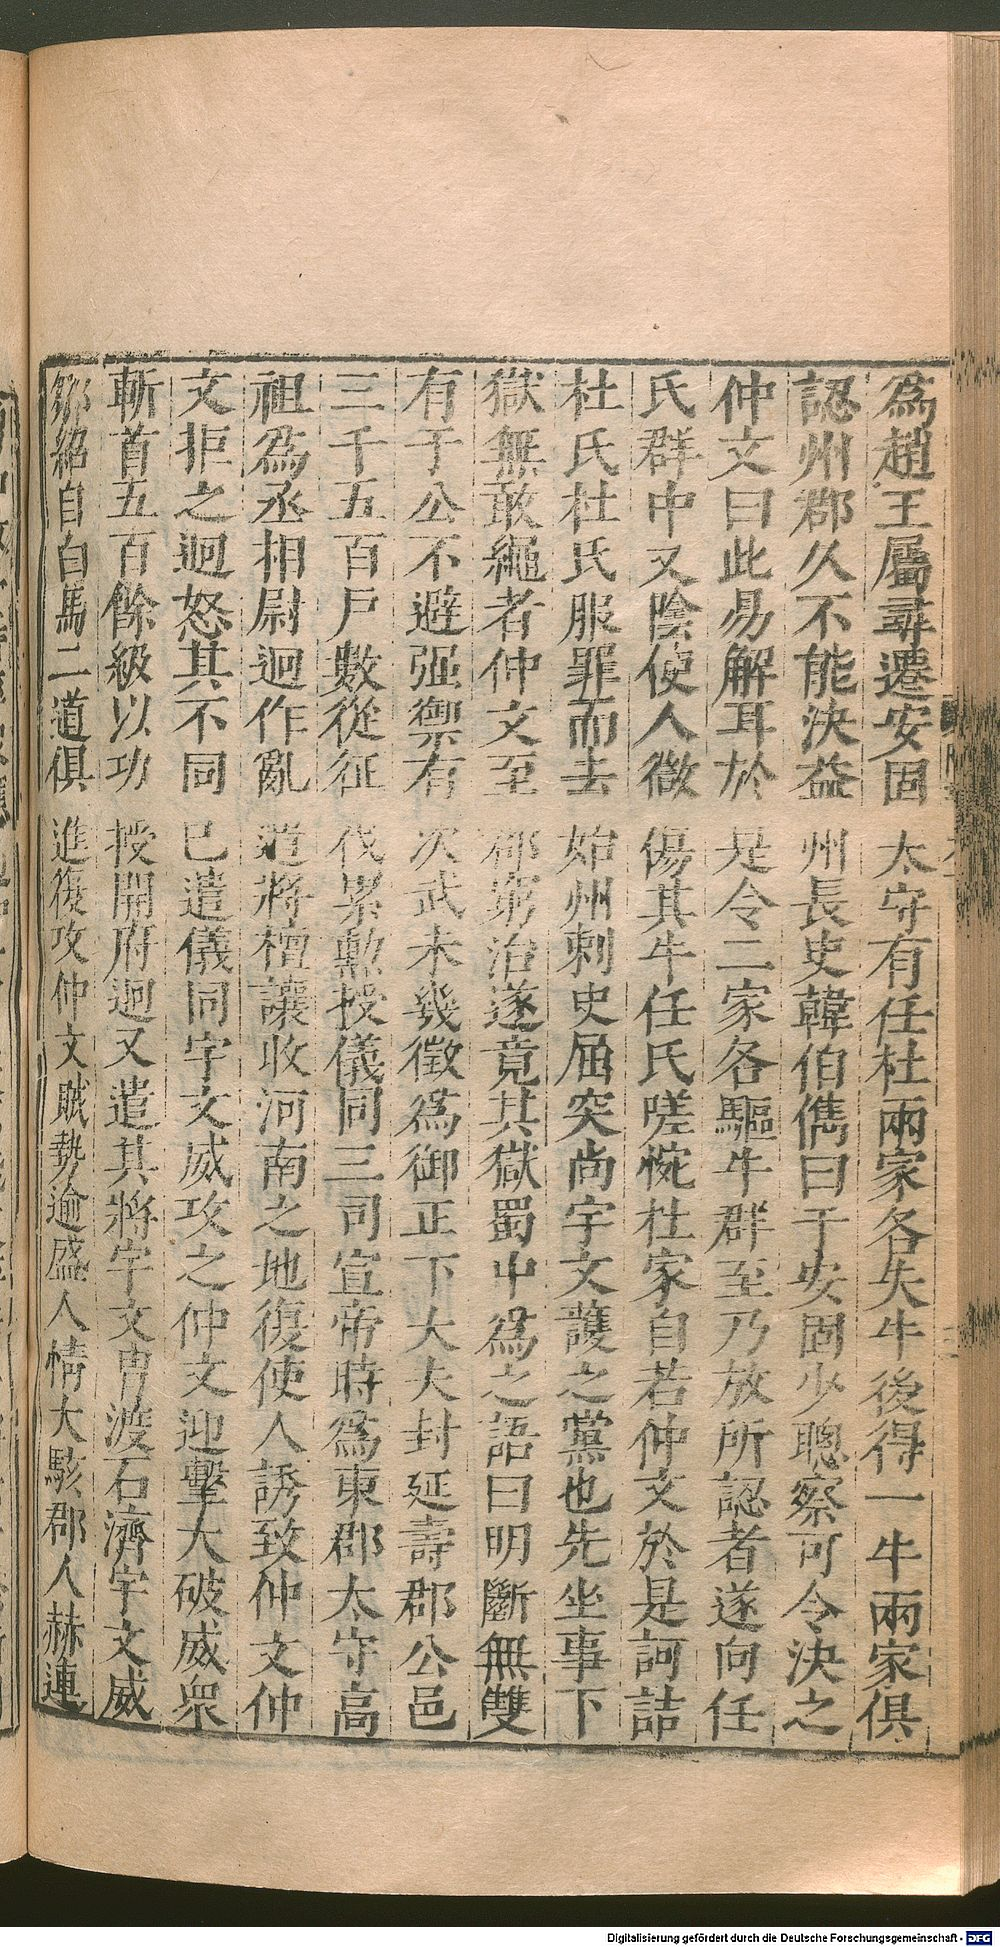 為趙王屬尋遷安固太守有任杜兩家各失牛後得一牛兩家俱
認州郡久不能決益州長史韓伯儁曰于安固少聰察可令決之
仲文曰此易解耳於是令二家各驅牛群至乃放所認者遂向任
氏群中又陰使人微傷其牛任氏嗟惋杜家自若仲文於是訶詰
杜氏杜氏服罪而去始州刺史屈突尚宇文護之黨也先坐事下
獄無敢繩者仲文至郡窮治遂竟其獄蜀中為之語曰明斷無雙
有于公不避强禦有次武未幾徵為御正下大夫封延壽郡公邑
三千五百戶數從征伐累勲授儀同三司宣帝時為東郡太守高
祖為丞相尉迥作亂遣將檀讓收河南之地復使人誘致仲文仲
文拒之迥怒其不同已遣儀同宇文威攻之仲文迎擊大破威衆
斬首五百餘級以功授開府迥又遣其將宇文冑渡石濟宇文威
鄒紹自白馬二道俱進復攻仲文賊勢逾盛人情大駭郡人赫連
Digitalisierung gefördert durch die Deutsche Forschungsgemeinschaft - DFG